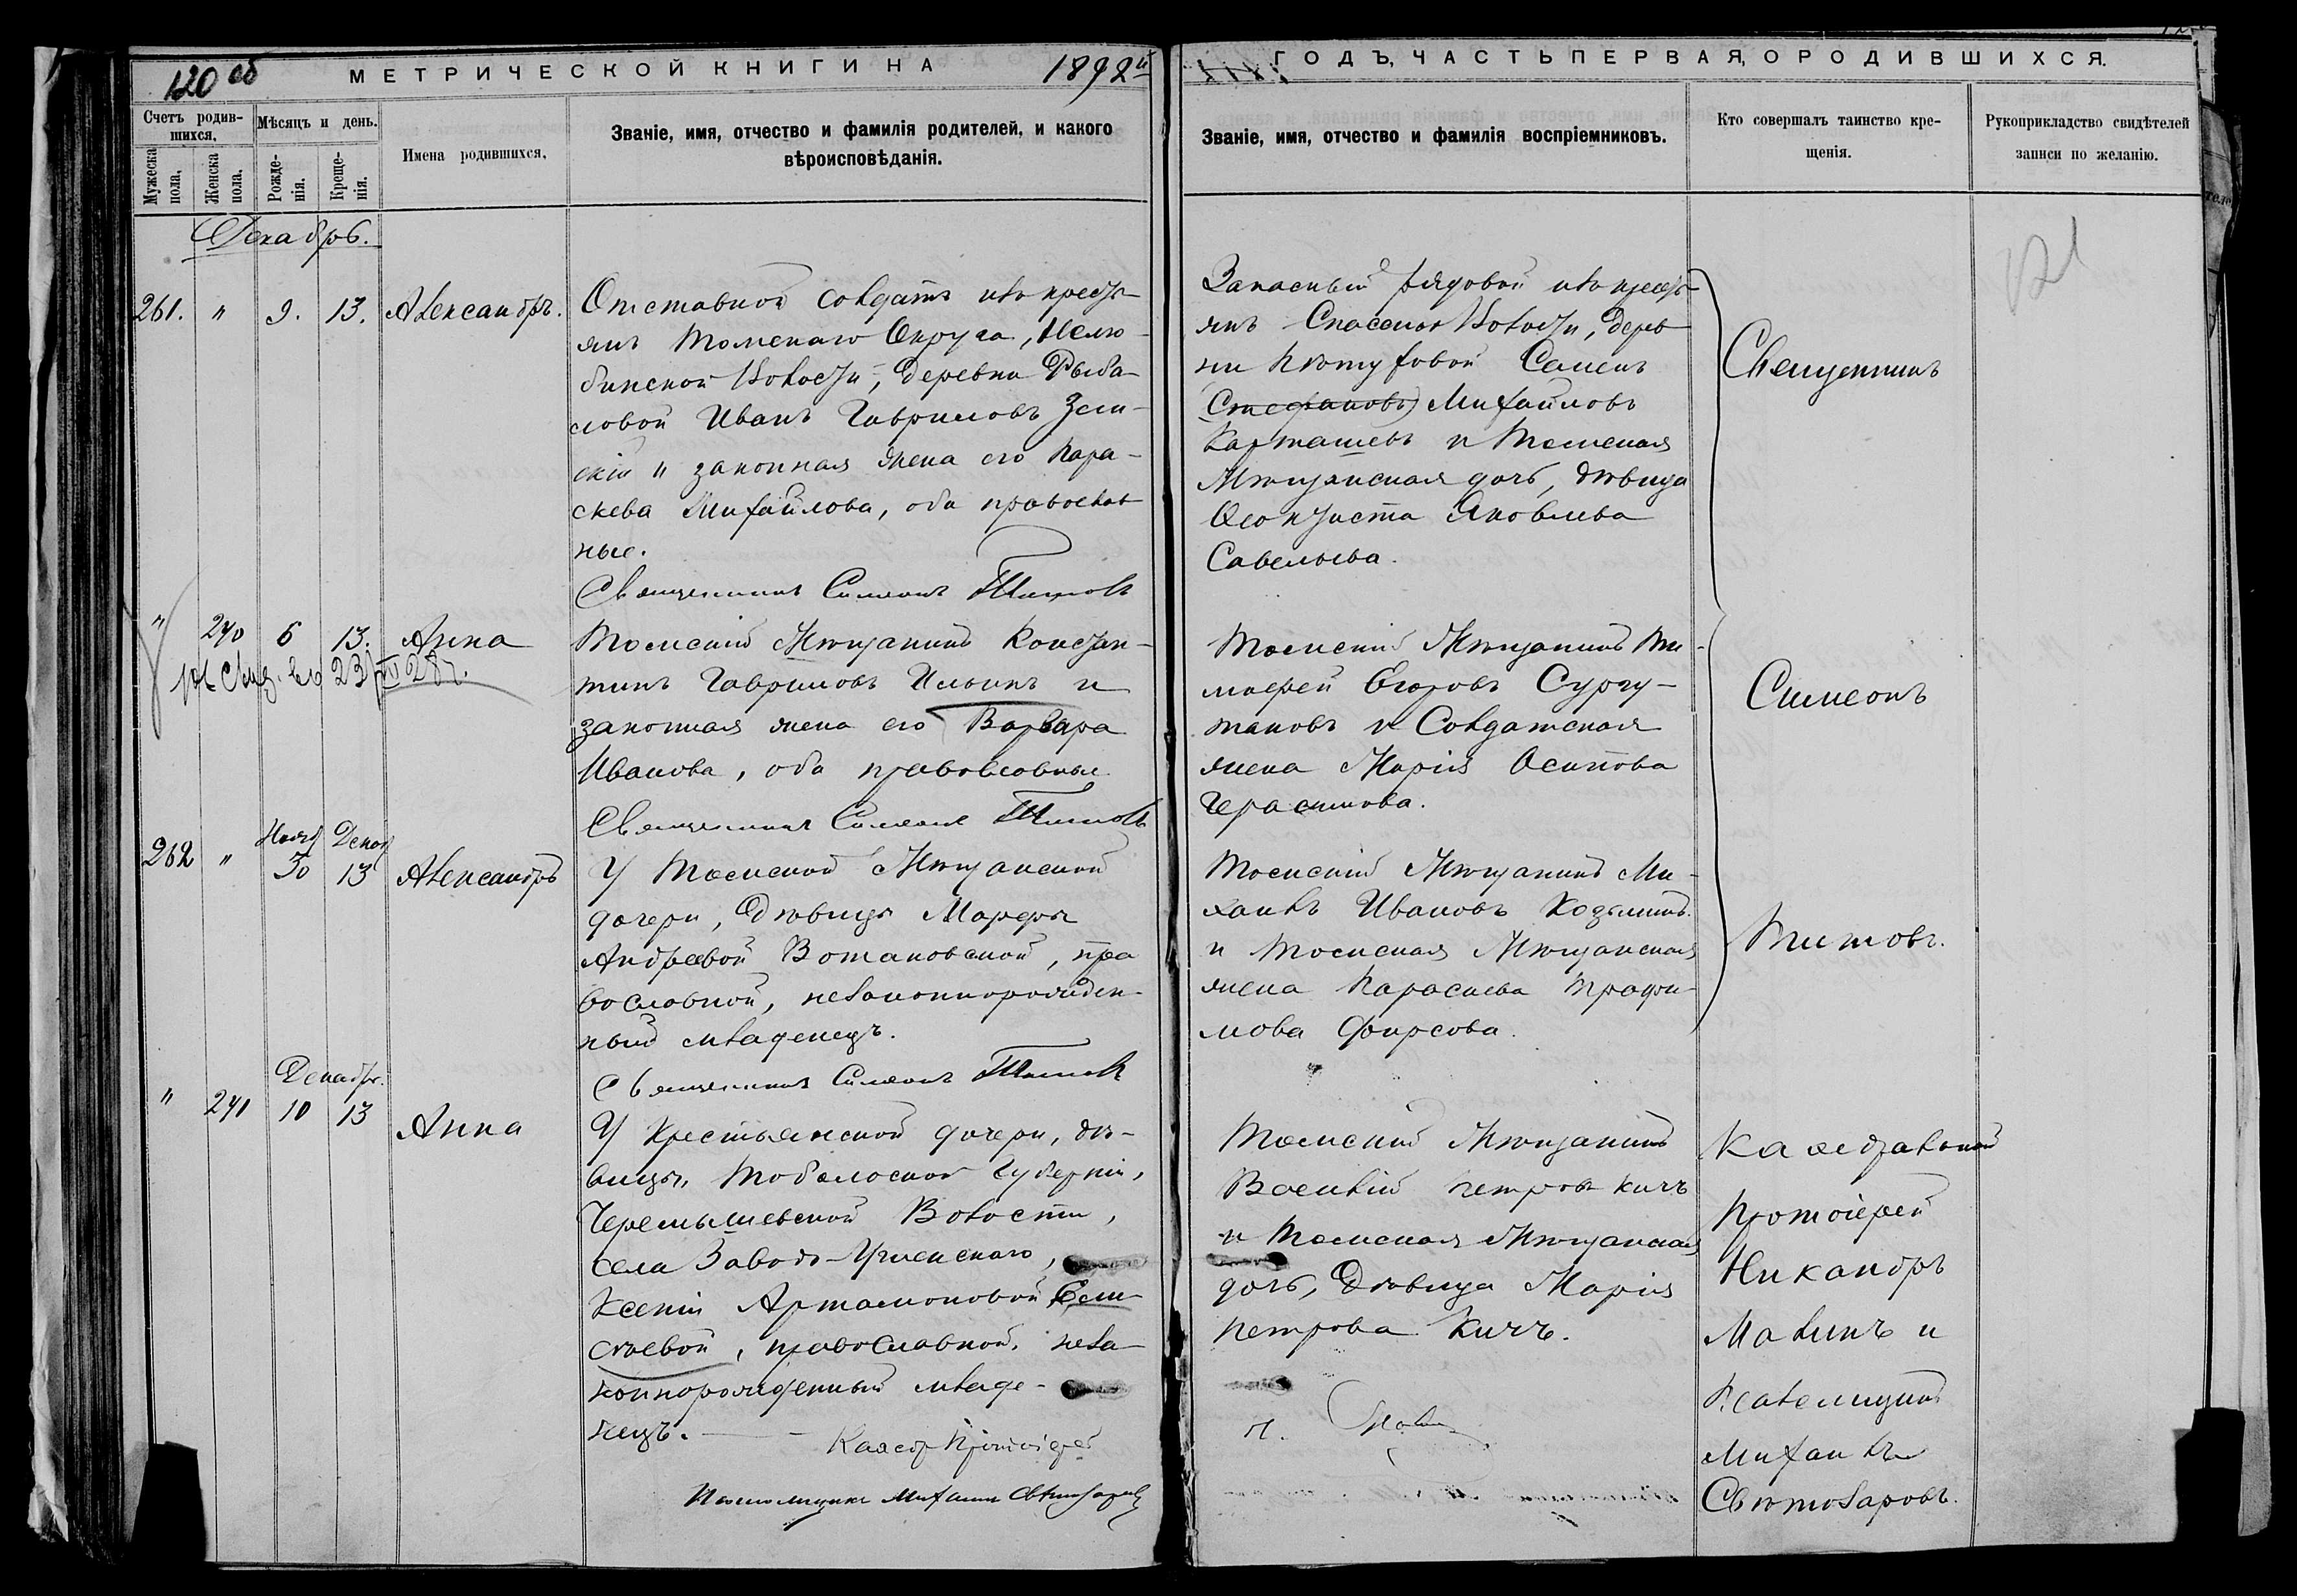 120 об
МЕТРИЧЕСКОЙ КНИГИ НА 1892й
ГОДЪ, ЧАСТЬ ПЕРВАЯ, О РОДИВШИХСЯ.
Счетъ родив-
шихся.
Мужеска
пола.
Женска
пола.
Мѣсяцъ и день.
Рожде-
нія.
Креще-
нія.
Имена родившихся.
Званіе, имя, отчество и фамилія родителей, и какого
вѣроисповѣданія.
Званіе, имя, отчество и фамилія воспріемниковъ.
Кто совершалъ таинство кре-
щенія.
Рукоприкладство свидѣтелей
записи по желанію.
121
Декабрь.
261. " 9. 13. Александръ.
Отставной солдатъ изъ кресть-
янъ Томскаго Округа, Нелю-
бинской Волости, деревни Рыба-
ловой Иванъ Гавриловъ Зем-
скій и законная жена его Пара-
скева Михайлова, оба православ
ные.
Священникъ Симеонъ Титовъ
Запасный рядовой изъ кресть
янъ Спасской Волости, дерев
ни Петуховой Семенъ
Стефановъ Михайловъ
Карташевъ и Томская
Мѣщанская дочь, дѣвица
Феоктиста Яковлева
Савельева.
Священникъ
Симеонъ
Титовъ.
" 240 6 13. Анна
23/III 28 г.
Томскій Мѣщанинъ Констан-
тинъ Гавриловъ Ильинъ и
законная жена его Варвара
Иванова, оба православные.
Священникъ Симеонъ Титовъ
Томскій Мѣщанинъ Ти-
мофей Егоровъ Сургу-
тановъ и Солдатская
жена Марія Осипова
Герасимова.
Нояб Декаб
262 " 30 13 Александръ
У Томской Мѣщанской
дочери, дѣвицы Марфы
Андреевой Вотановской, пра
вославной, незаконнорожден-
ный младенецъ.
Священникъ Симеонъ Титовъ
Томскій Мѣщанинъ Ми-
хаилъ Ивановъ Козьминъ
и Томская Мѣщанская
жена Параскева Трофи-
мова Фирсова.
Декабр.
" 241 10 13 Анна
У Крестьянской дочери, дѣ-
вицы, Тобольской Губерніи,
Черемышевской Волости,
села Заводо-Успенскаго,
Ксеніи Артамоновой Ели-
сѣевой, православной, неза-
коннорожденный младе-
нецъ.
Каѳедр Протоіерей Н. Малинъ
Псаломщикъ Михаилъ Свѣтозаровъ
Томскій Мѣщанинъ
Василій Петровъ Кичъ
и Томская Мѣщанская
дочь, дѣвица Марія
Петрова Кичъ.
Каѳедральный
Протоіерей
Никандръ
Малинъ и
Псаломщикъ
Михаилъ
Свѣтозаровъ.